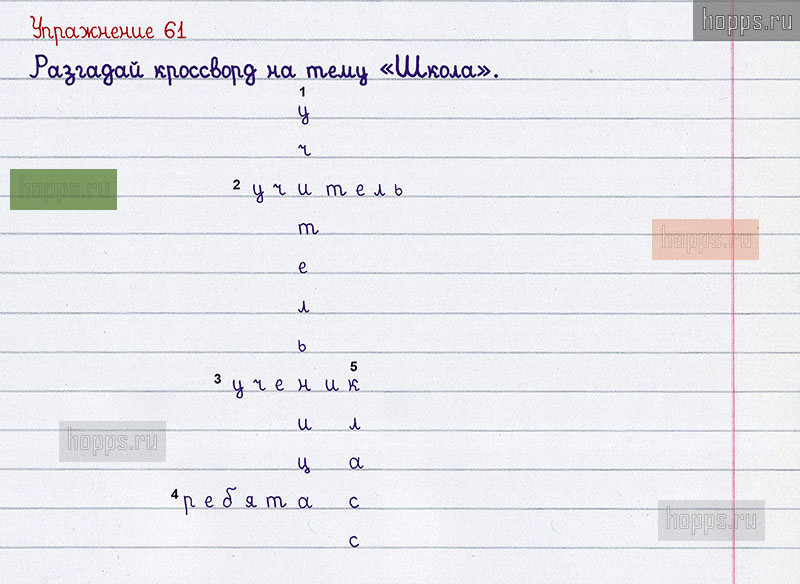 hopps.ru
Упражнение 61
Разгадай кроссворд на тему «Школа».
1
у
ч
2 учитель
hopps.ru
т
hopps.ru
е
л
ь
5
3 ученик
и л
hopps.ru
ц а
4 ребята с
hopps.ru
с